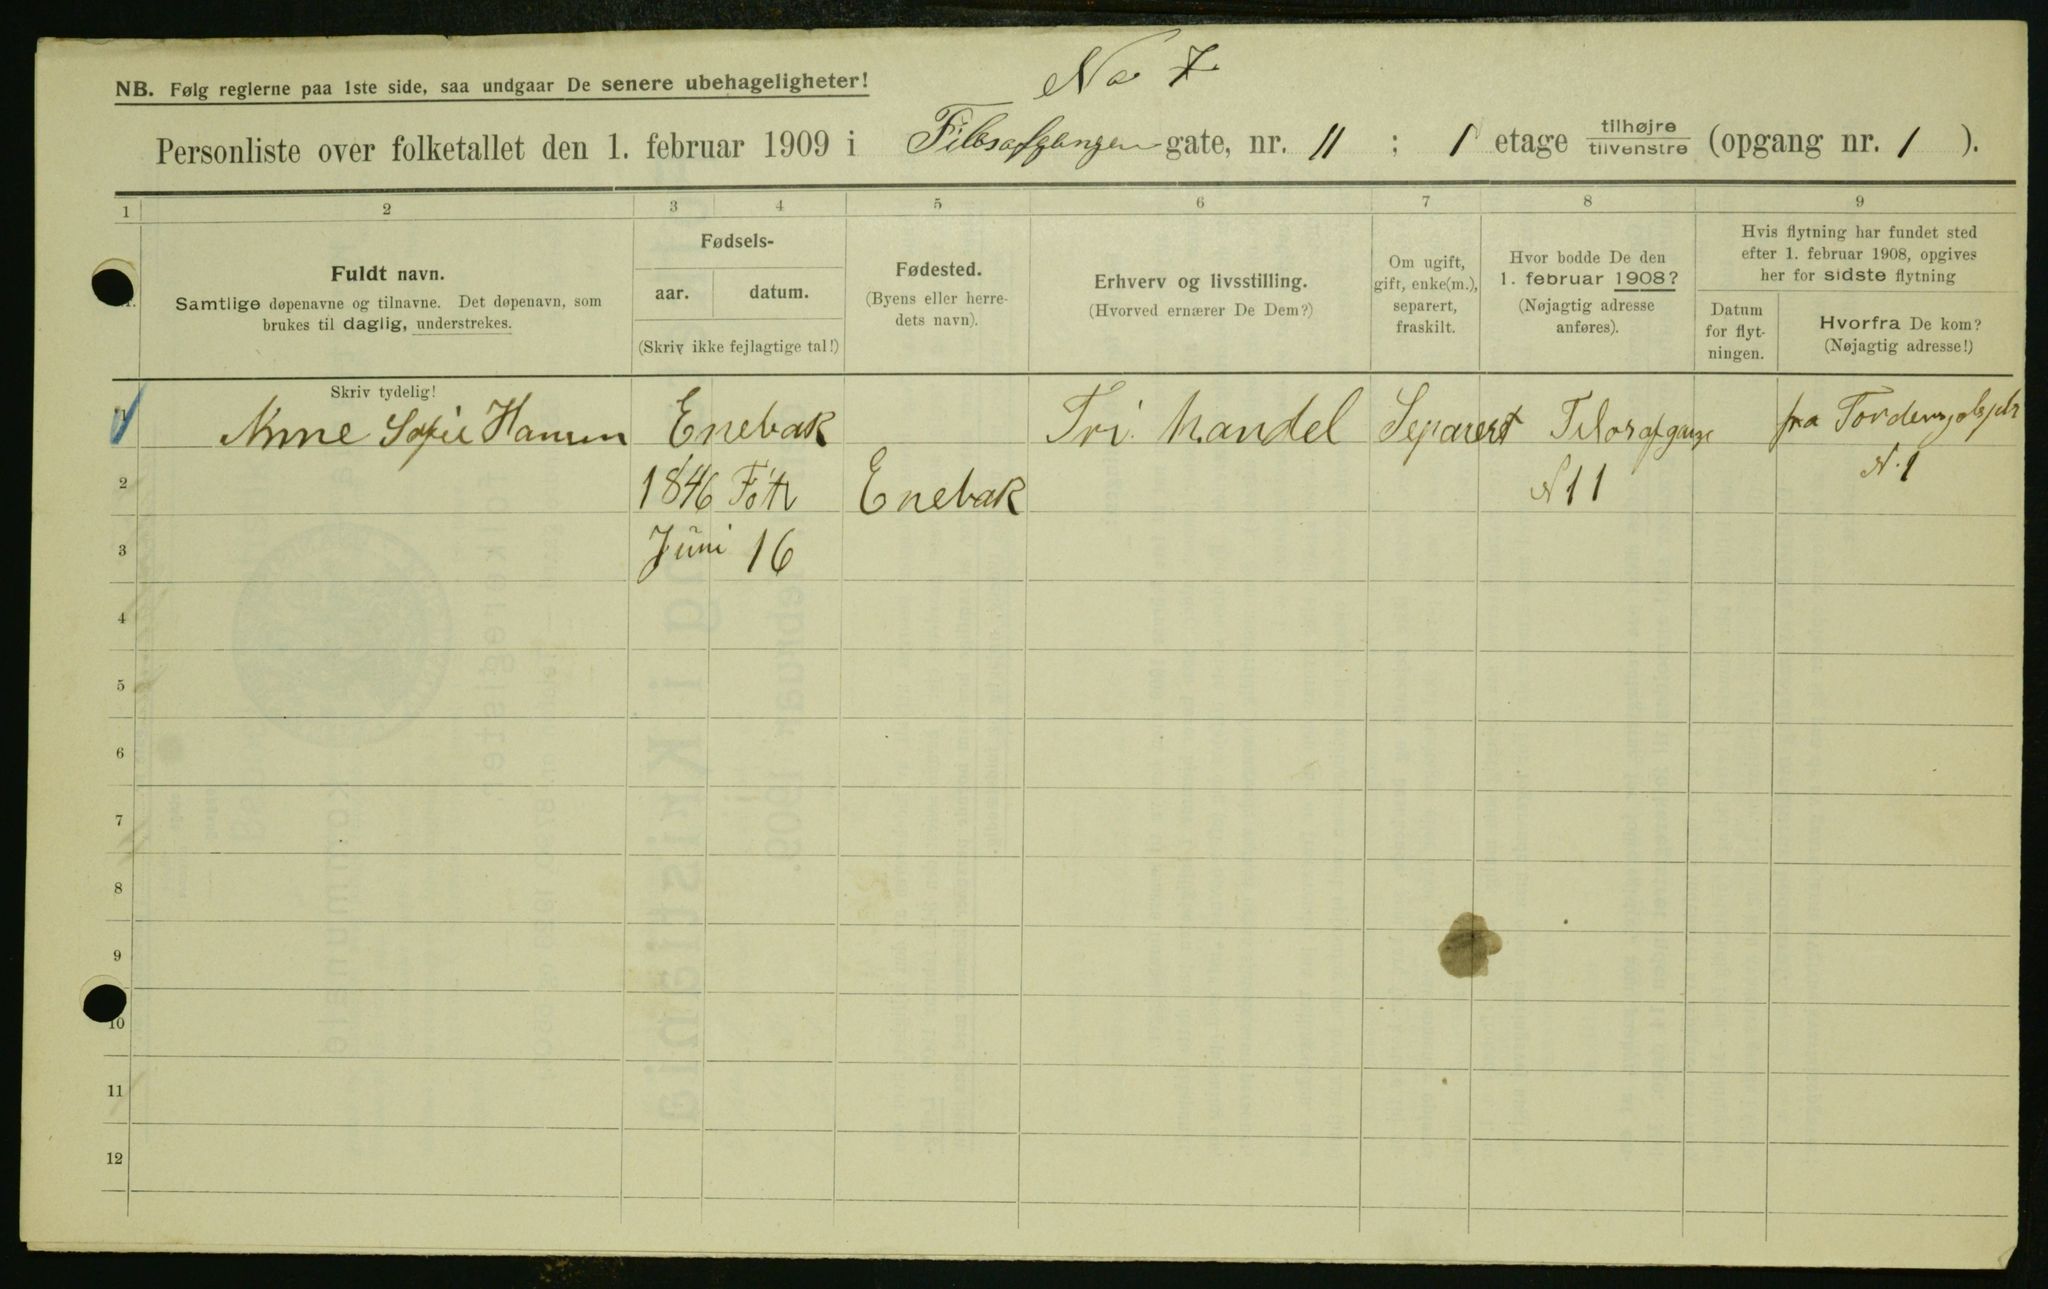 No 7
NB. Følg reglerne paa 1ste side, saa undgaar De senere ubehageligheter!
Personliste over folketallet den 1. februar 1909 i Filosofgangen gate, nr. 11 ; 1 etage tilhøjre tilvenstre (opgang nr. 1 ).
1 2 3 4 5 6 7 8 9
Fuldt navn.
Samtlige døpenavne og tilnavne. Det døpenavn, som
brukes til daglig, understrekes.
Fødsels-
aar. datum.
(Skriv ikke fejlagtige tal!)
Fødested.
(Byens eller herre-
dets navn).
Erhverv og livsstilling.
(Hvorved ernærer De Dem?)
Om ugift,
gift, enke(m.),
separert,
fraskilt.
Hvor bodde De den
1. februar 1908?
(Nøjagtig adresse
anføres).
Hvis flytning har fundet sted
efter 1. februar 1908, opgives
her for sidste flytning
Datum
for flyt-
ningen.
Hvorfra De kom?
(Nøjagtig adresse!)
Skriv tydelig!
1 Anne Sofie Hansen Enebak Fri Handel Separert Filosofgange fra
2 1846 Enebak N 11 N. 1
3 Juni 16
4
5
6
7
8
9
10
11
12